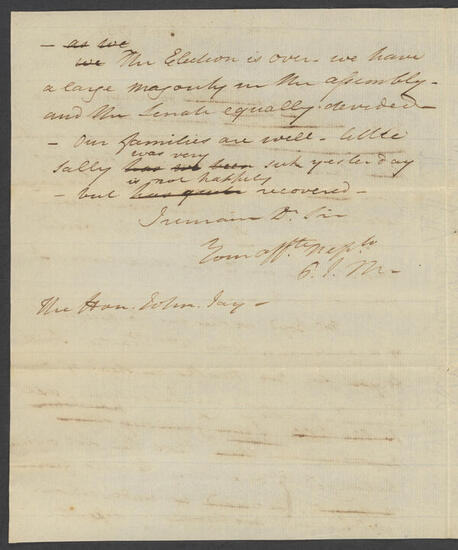 – as we
we The Election is over – we have
a large majority in the assembly –
and the Senate equally divided –
– Our families are well – little
was very
Sally has we been sick yesterday
is not happily
– but has quite recovered –
I remain Dr. Sir
Your afft. Neph
P. J. M –
The Hon. John Jay –